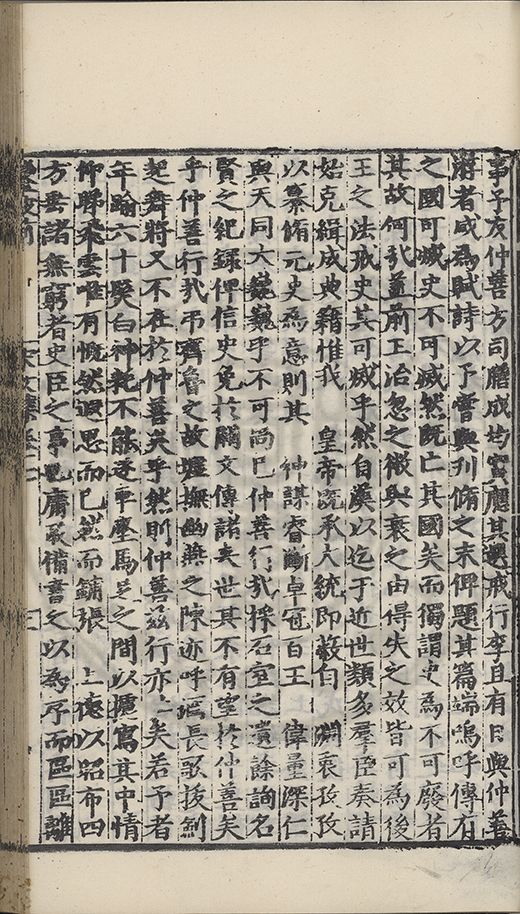 事予友仲善方司膳成均實應其選戒行李且有日與仲善
游者咸為賦詩以予嘗與刊脩之末俾題其篇端嗚呼傳有
之國可滅史不可滅然既亡其國矣而獨謂史為不可廢者
其故何哉蓋前王治忽之徵興衰之由得失之效皆可為後
王之法戒史其可滅乎然自漢以迄于近世類多羣臣奏請
始克緝成典籍惟我 皇帝既承大統即敕自 淵衷孜孜
以纂脩元史為意則其 神謀睿斷卓冠百王 偉量深仁
與天同大巍巍乎不可尚已仲善行哉採石室之遺餘詢名
賢之紀錄俾信史免於闕文傳諸來世其不有望於仲善矣
乎仲善行哉弔齊魯之故墟撫幽燕之陳迹呼酒長歌拔劍
起舞將又不在於仲善矣乎然則仲善茲行亦上矣若予者
年踰六十鬢白神耗不能逐車塵馬足之間以攄寫其中情
仰睇飛雲唯有慨然遐思而已然而鋪張 上德以昭布四
方垂諸無窮者史臣之事也庸敢備書之以為序而區區離